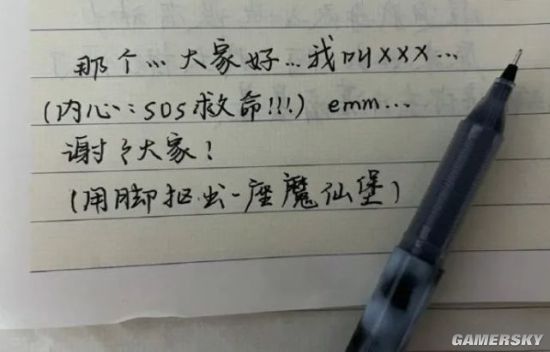 那个… 大家好…我叫xxx…
(内心：SOS救命!!!) emm…
谢了大家！
(用脚抠出一座魔仙堡)
GAMERSKY